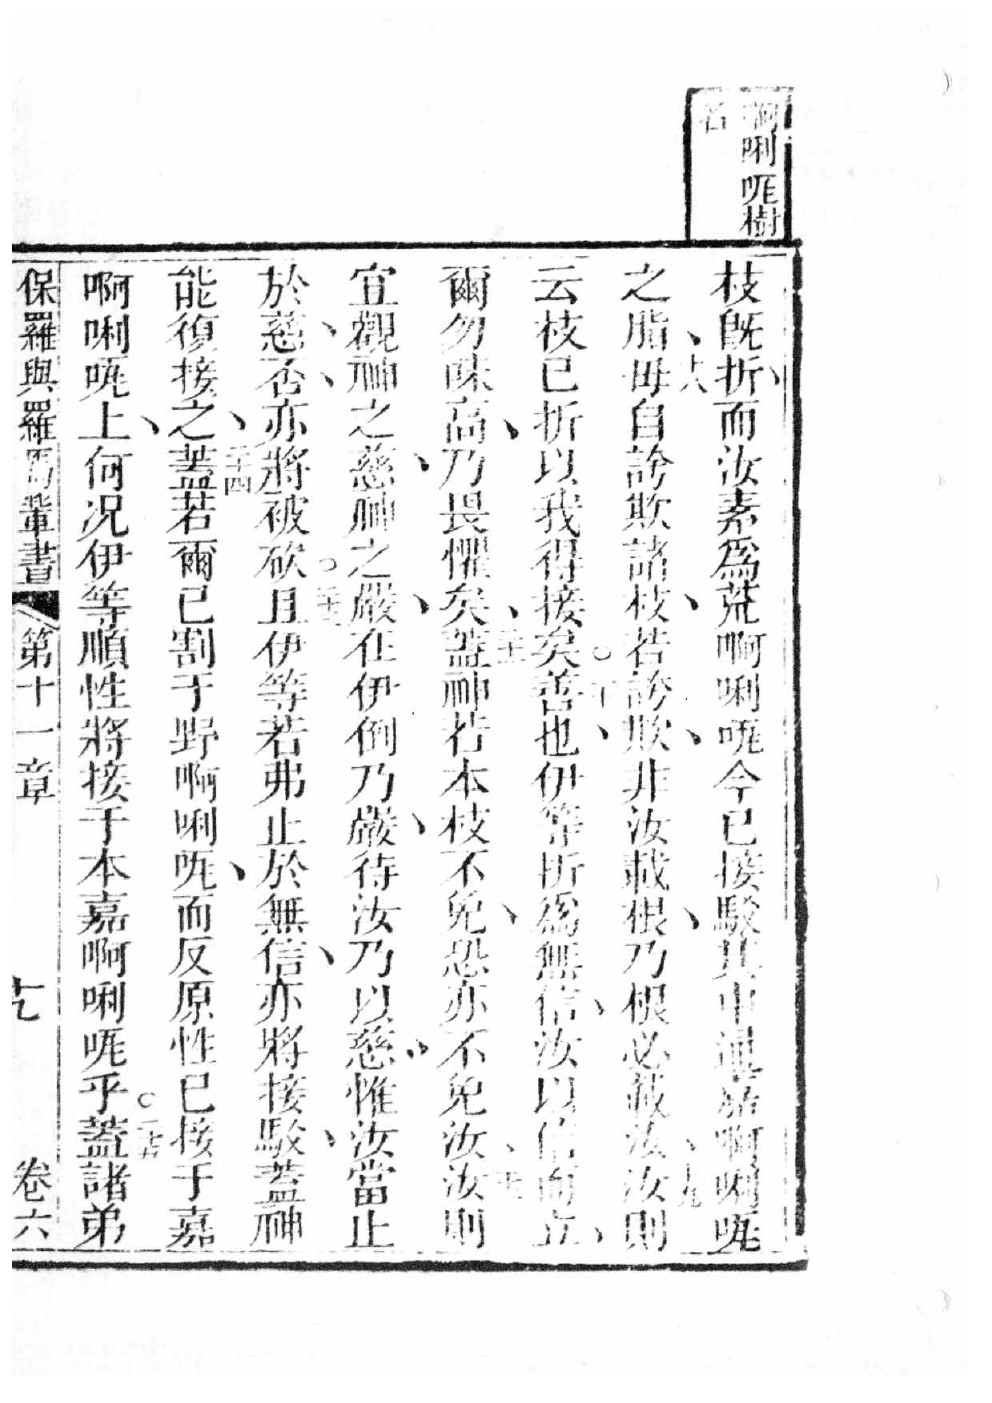 啊唎㖠樹
名
枝既折而汝素為荒啊唎㖠今已接駁其中還嘉啊唎㖠
之脂十八毋自誇欺諸枝若誇欺非汝載根乃根必載汝十九汝則
云枝已折以我得接矣二十善也伊等折為無信汝以信而立
爾勿味高乃畏懼矣二十一蓋神若本枝不免恐亦不免汝二十二汝則
宜觀神之慈神之嚴在伊倒乃嚴待汝乃以慈惟汝當止
於慈否亦將被砍二十三且伊等若弗止於無信亦將接駁蓋神
能復接之二十四蓋若爾已割于野啊唎㖠而反原性已接于嘉
啊唎㖠上何況伊等順性將接于本嘉啊唎㖠乎二十五蓋諸弟
保羅與羅馬輩書 第十一章 卷六